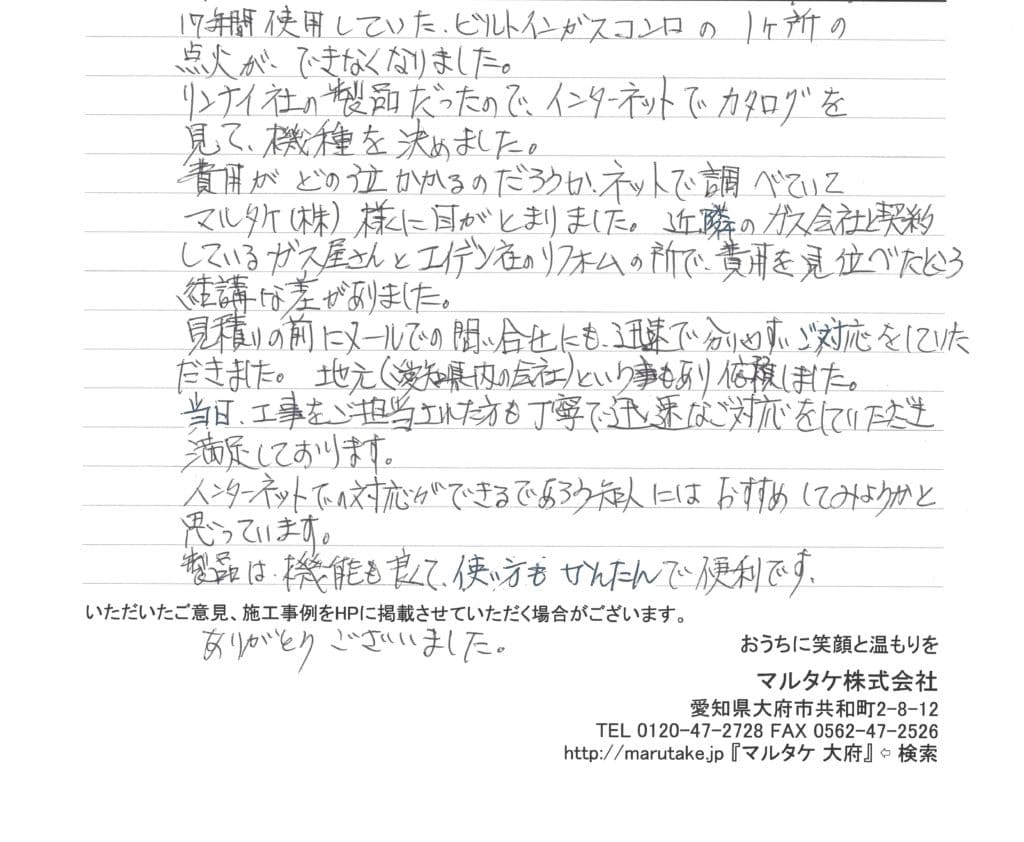 17年間使用していた、ビルトインガスコンロの 1ヶ所の
点火が、できなくなりました。
リンナイ社の製品だったので、インターネットでカタログを
見て、機種を決めました。
費用がどの位かかるのだろうか、ネットで調べていて
マルタケ(株)様に目がとまりました。近隣のガス会社と契約
しているガス屋さんとエイデン社のリフォームの所で、費用を見位べたところ
結講な差がありました。
見積りの前にメールでの問い合せにも、迅速で分りやすいご対応をしていた
だきました。地元(愛知県内の会社)という事もあり依頼しました。
当日、工事をご担当された方も丁寧で、迅速なご対応をしていただき
満足しております。
インターネットでの対応ができるであろう知人にはおすすめしてみようかと
思っています。
製品は、機能も良くて、使い方もかんたんで便利です、
いただいたご意見、施工事例をHPに掲載させていただく場合がございます。
ありがとうございました。
おうちに笑顔と温もりを
マルタケ株式会社
愛知県大府市共和町2-8-12
TEL 0120-47-2728 FAX 0562-47-2526
http://marutake.jp『マルタケ 大府』⇦ 検索